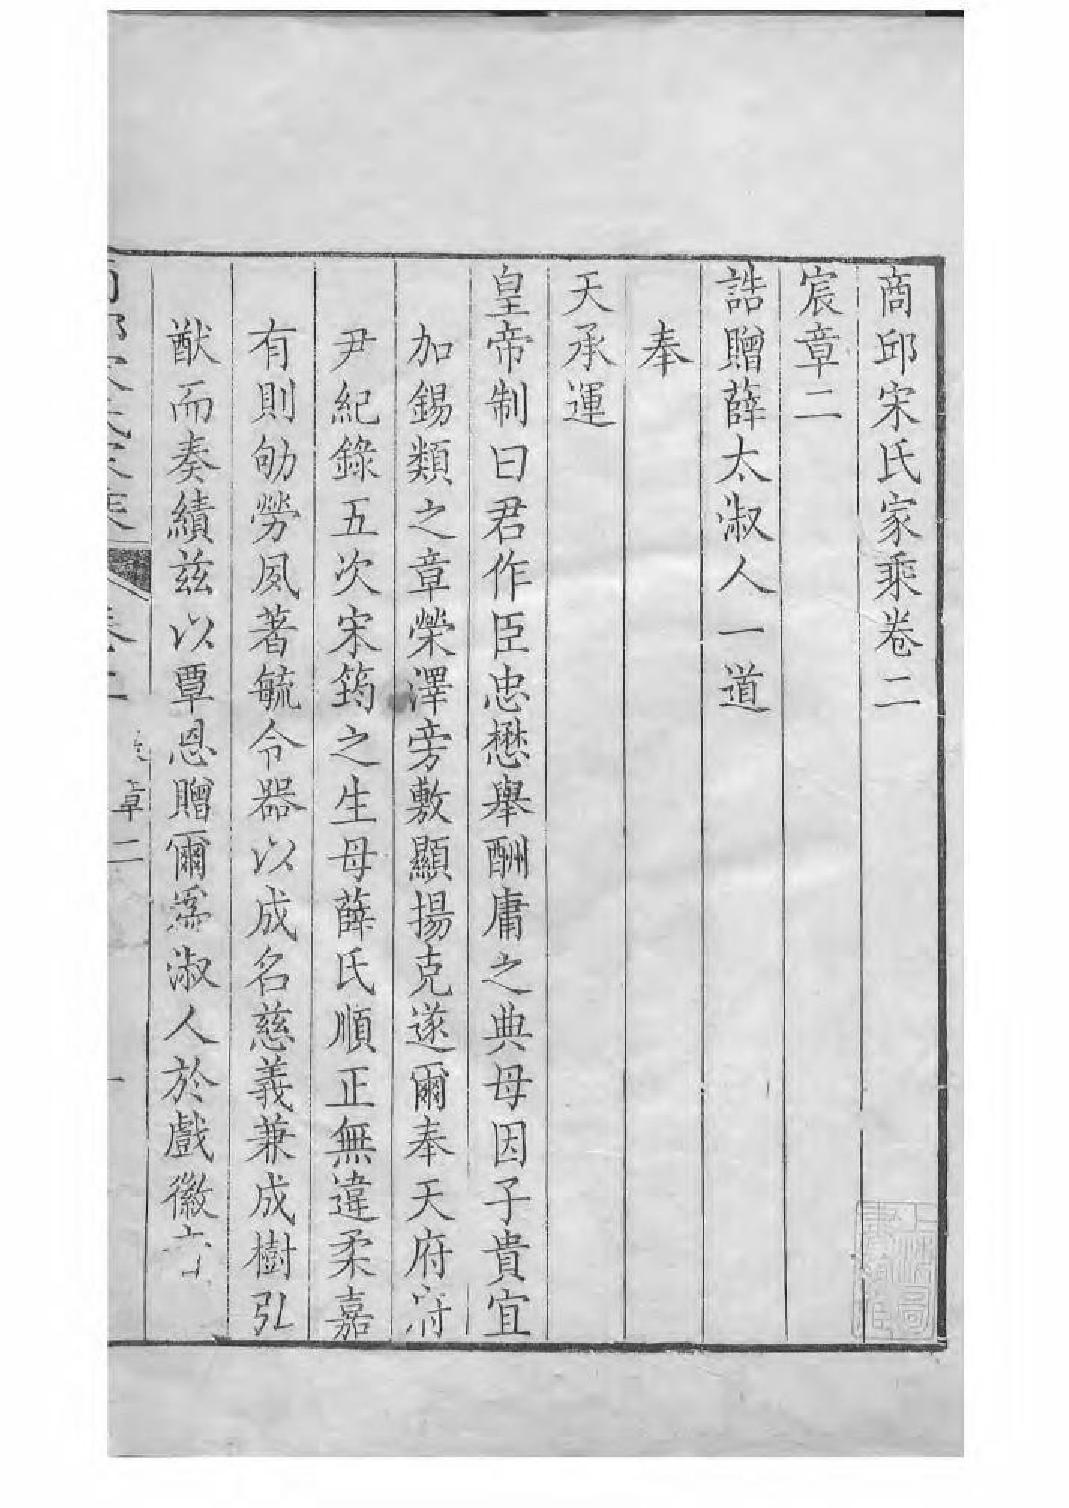 商邱宋氏家乘卷二
宸章二
誥贈薛太淑人一道
奉
天承運
皇帝制曰君作臣忠懋舉酬庸之典母因子貴宜
加錫類之章榮澤旁敷顯揚克遂爾奉天府府
尹紀錄五次宋筠之生母薛氏順正無違柔嘉
有則劬勞夙著毓令器以成名慈義兼成樹弘
猷而奏績兹以覃恩贈爾爲淑人於戲徽
商邱宋氏家乘
卷二
章二
一